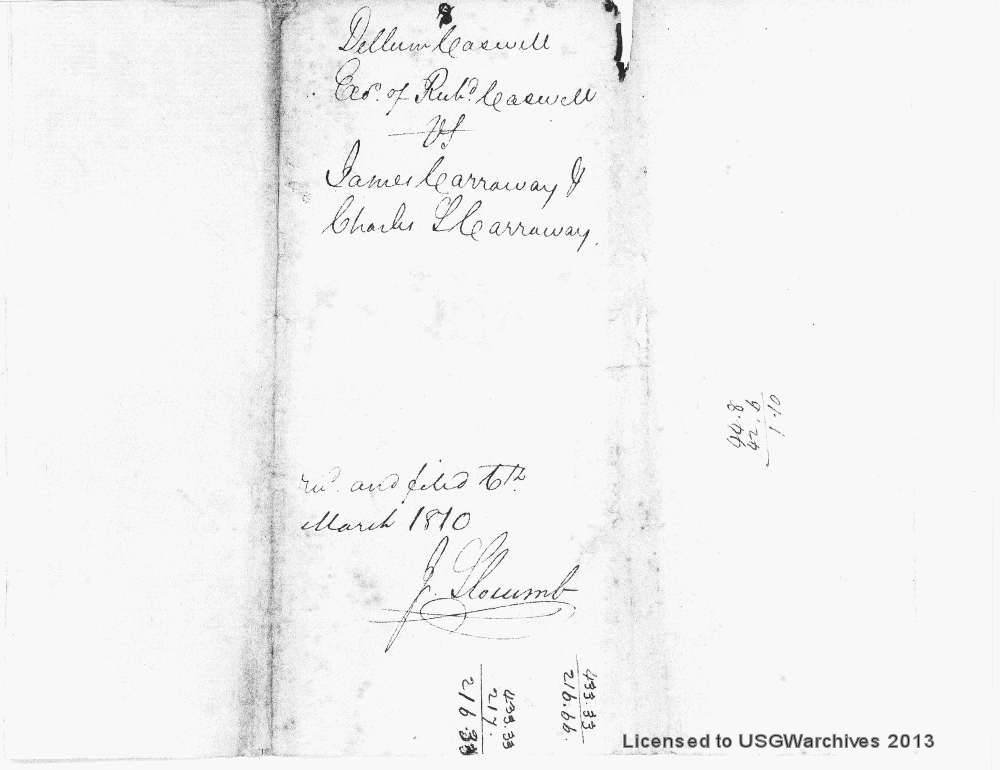 Dellum Caswell
Exo.r of Rubn. Caswell
VS
James Carraway &
Charles L Carraway.
8.46
9.24
1.10
rec. and filed 6th.
March 1810
J. Slocumb
433.33
217.
216.33
433.33
216.66.
Licensed to USGWarchives 2013